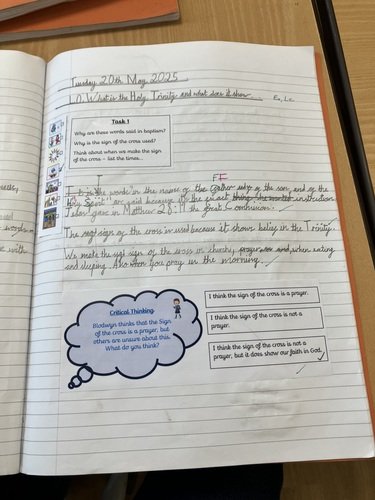 Tuesday 20th May 2025
L.O. What is the Holy Trinity and what does it show
Task 1
Why are these words said in baptism?
Why is the sign of the cross used?
Think about when we make the sign
of the cross – list the times.
the words in the name of the father
of the son, and of the
Holy Spirit" are said because it's the exact instruction
gave in Matthew 28:19 the great commission.
The sign of the cross is used because it shows belief in the Trinity.
We make the sign of the cross in church, when eating
and sleeping. Also when you pray in the morning.
Critical Thinking
Blodwyn thinks that the Sign
of the cross is a prayer, but
others are unsure about this.
What do you think?
I think the sign of the cross is a prayer.
I think the sign of the cross is not a
prayer.
I think the sign of the cross is not a
prayer, but it does show our faith in God.